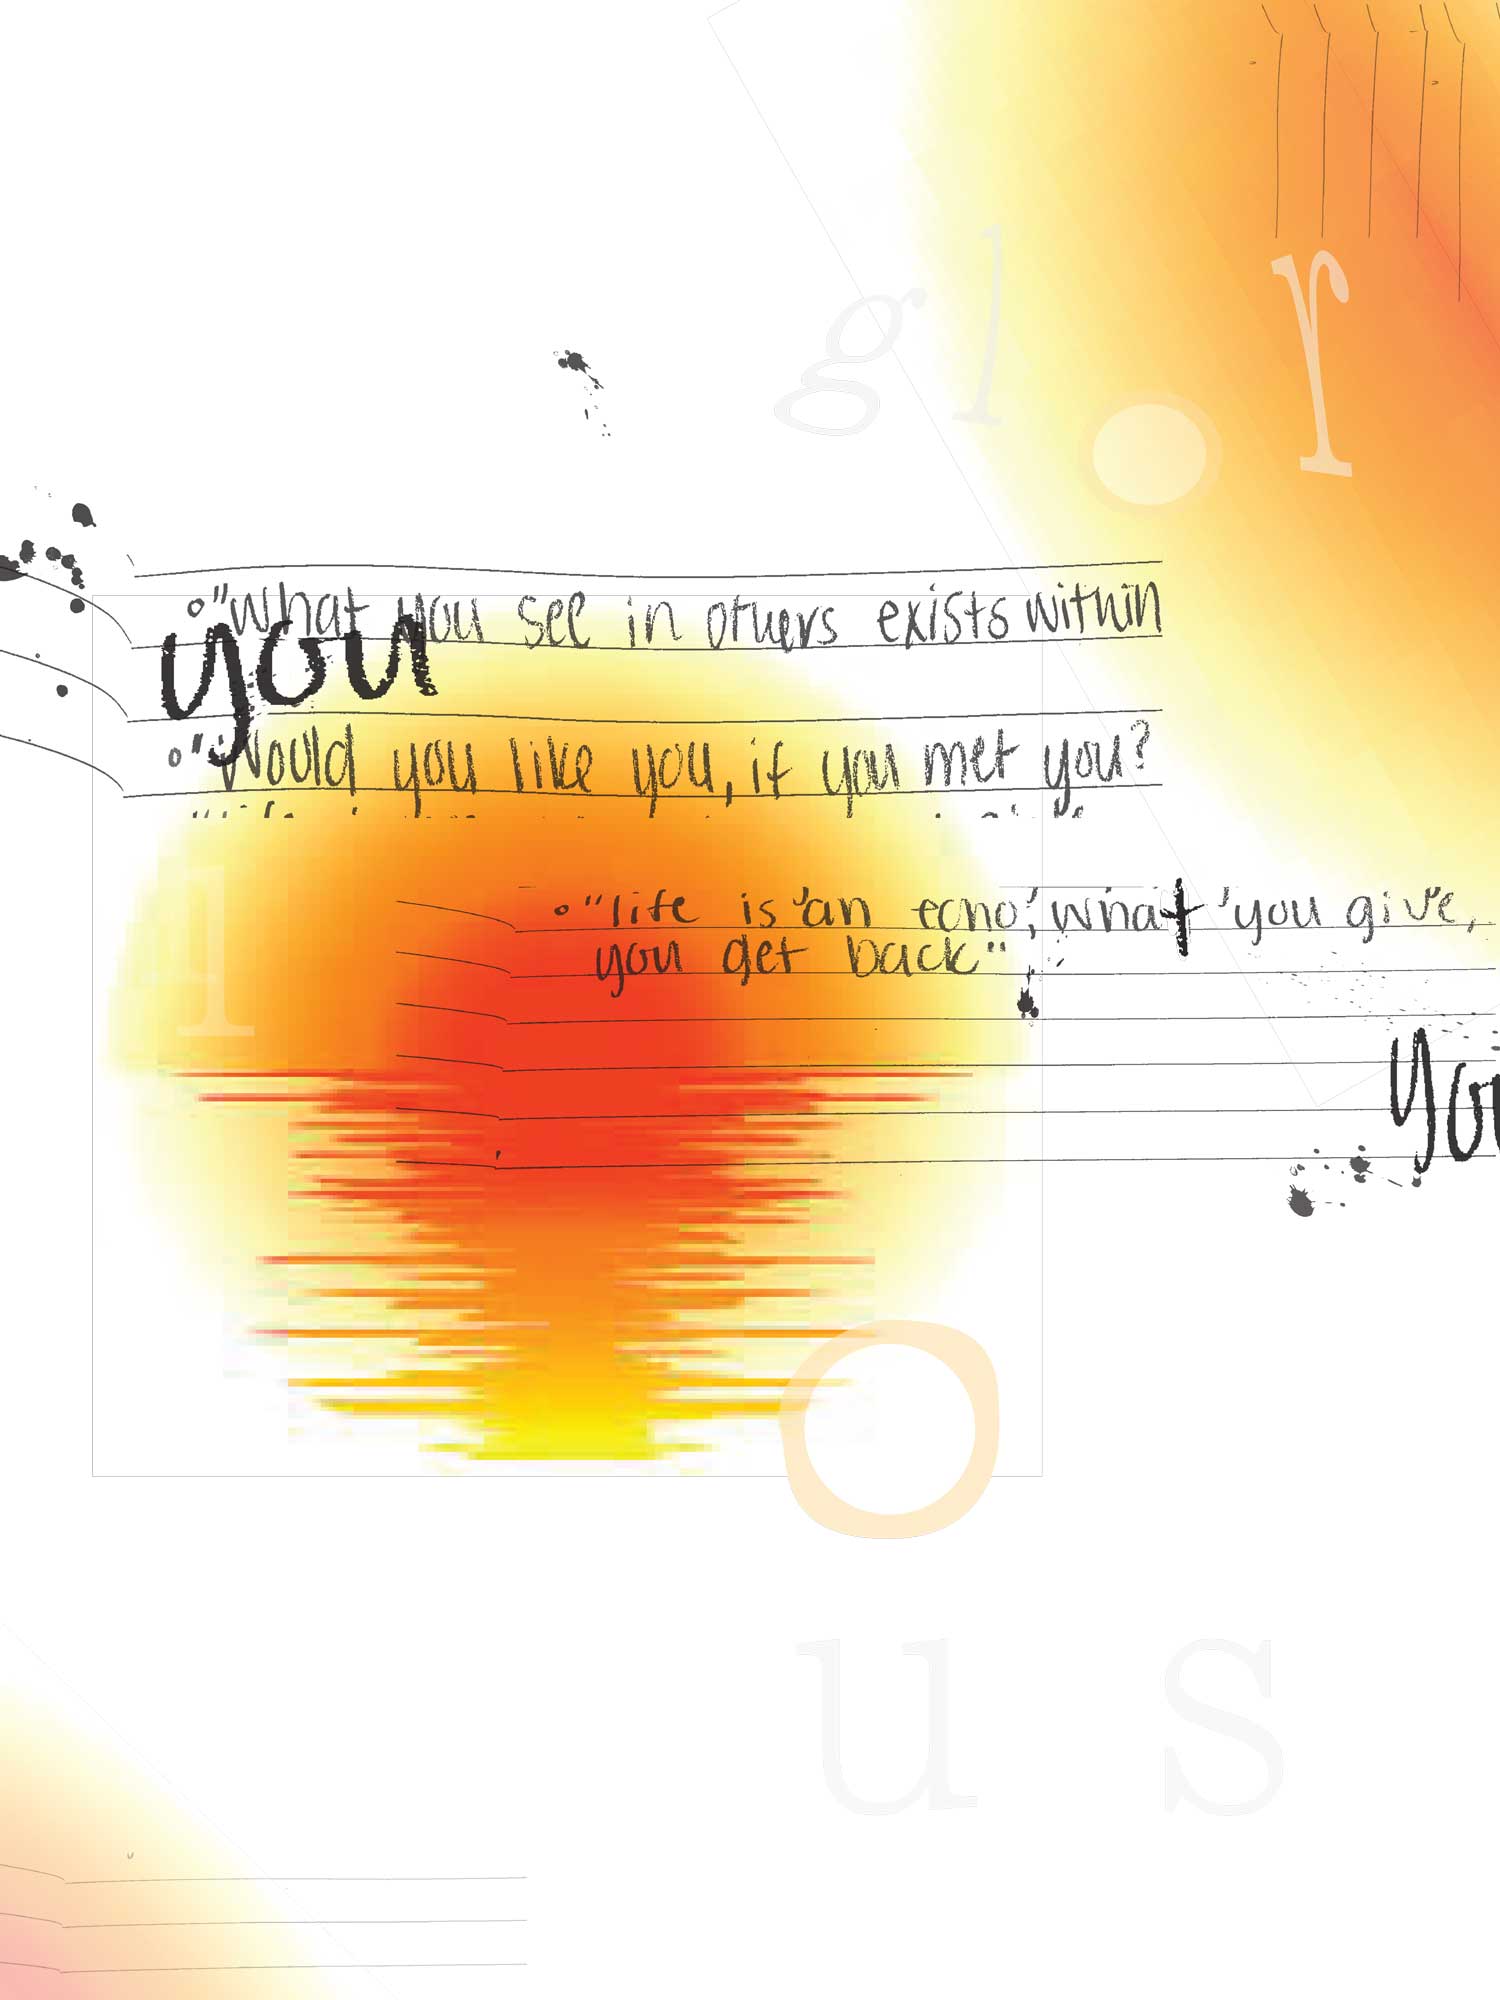 g l o r
"What you see in others exists within
you
"Would you like you, if you met you?
"life is an echo, what you give,
you get back"
you
i
o
u s